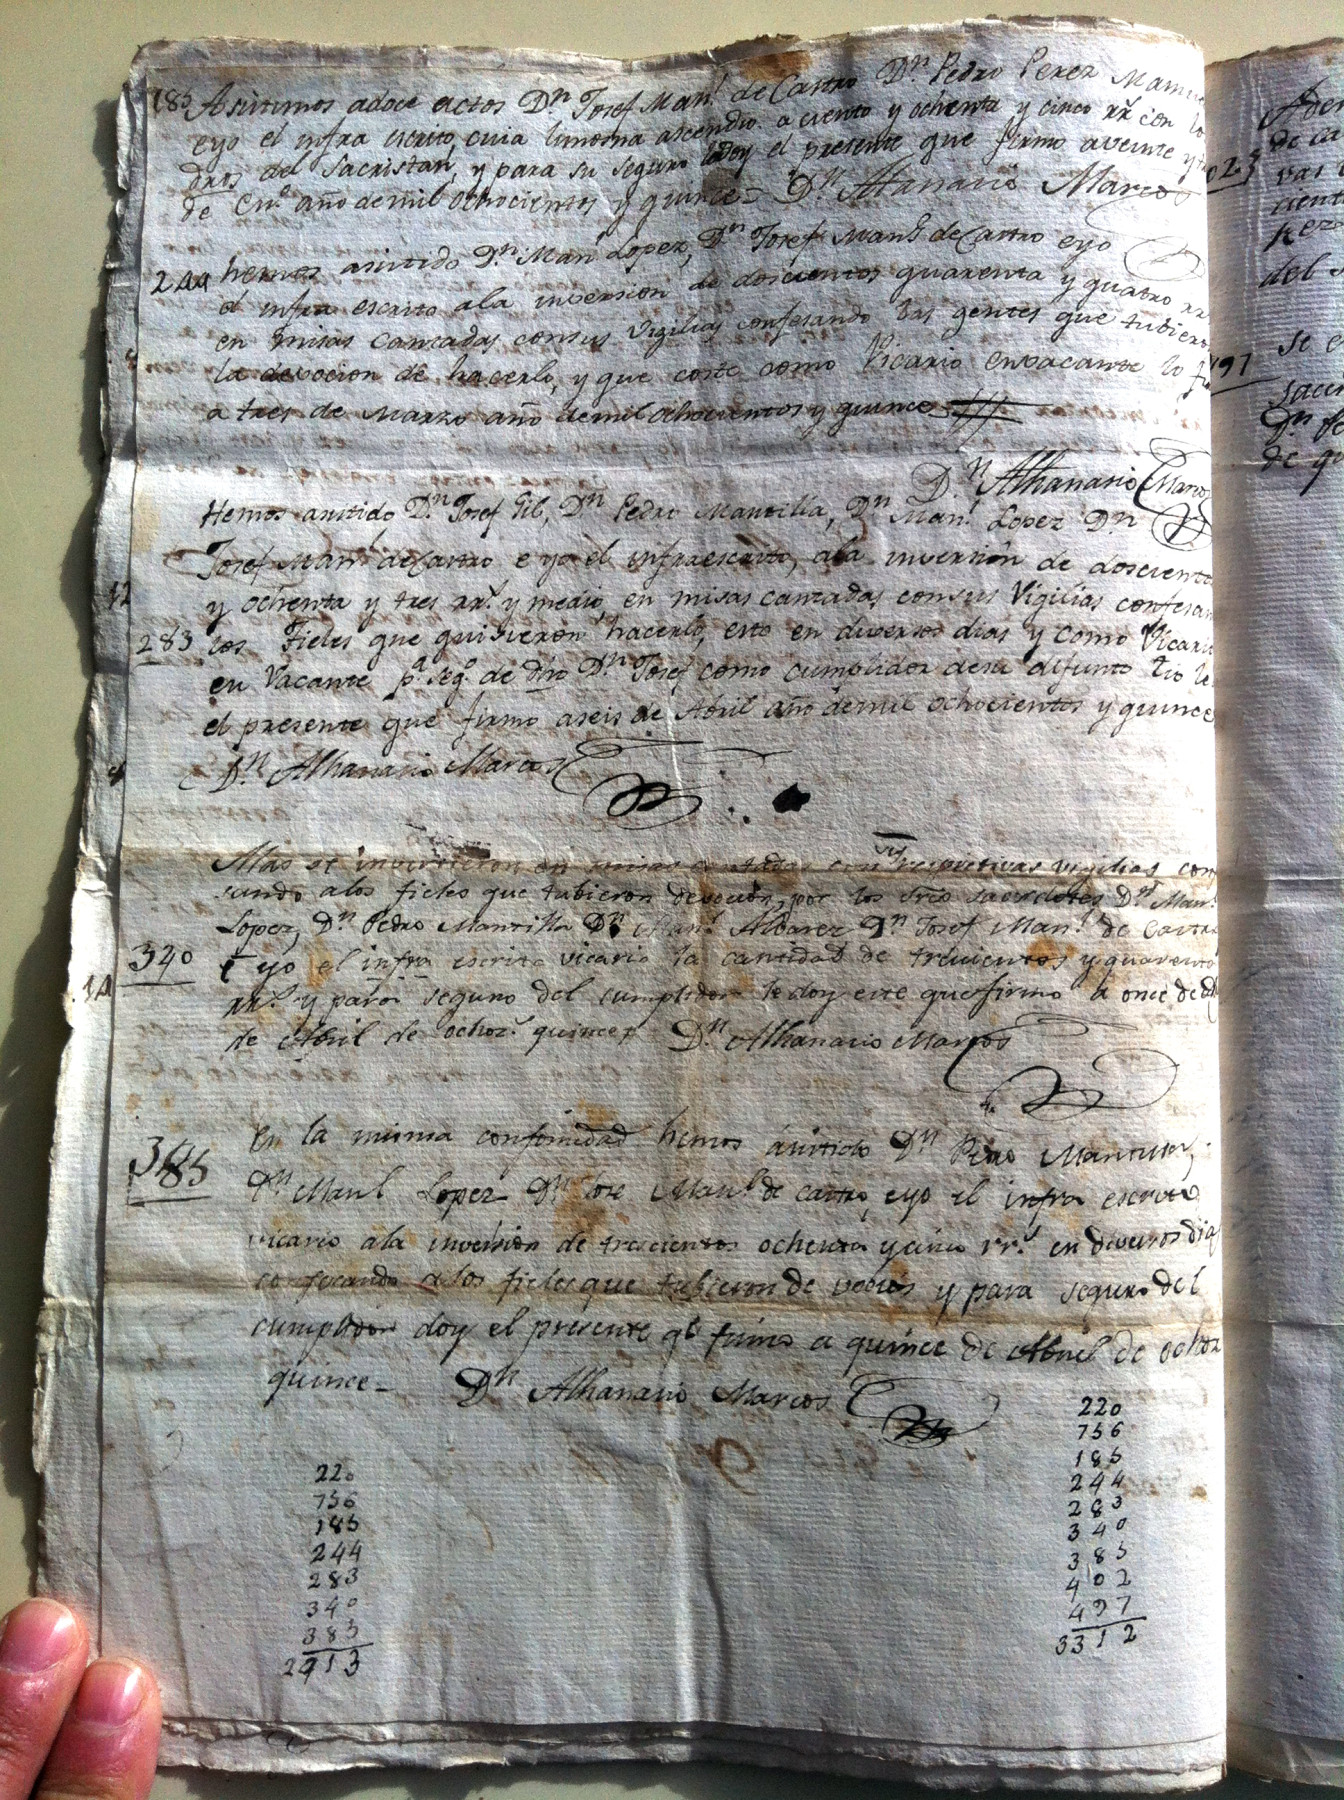 185 Asistimos a doce actos Dn Josef Manl de Castro Dn Pedro Perez
eyo el infra escrito, cuia limosna ascendio a ciento y ochenta y cinco rr con
dros del Sacristan, y para su seguro le doy el presente que firmo a veinte y
de En.o año demil ochocientos y quince = Dn Atanasio Marcos
244 hemos asistido Dn Manl Lopez, Dn Josef Manl de Castro eyo
el infra escrito ala inversion de doscientos quarenta y quatro rr
en misas cantadas consus Vigilias confesando las gentes que tubieron
la devocion de hacerlo, y que coste como Vicario envacante lo
a tres de Marzo año demil ochocientos y quince
Dn Athanasio Marcos
Hemos asistido Dn Josef Gil, Dn Pedro Mantilla, Dn Manl Lopez Dn
Josef Manl de Castro e yo el infraescrito, ala inversion de doscientos
12 y ochenta y tres rr.s y medio, en misas cantadas consus Vigilias confesan
283 los Fieles que quisieron hacerlo, esto en diversos dias y como Vicario
en Vacante pa. seg.o de dho Dn Josef como cumplidor desu difunto tio le
el presente que firmo aseis de Abril año demil ochocientos y quince
Dn Athanasio Marcos
Mas se invirtieron en misas cantadas con sus respectivas vigilias con
sando alos fieles que tubieron devocion, por los Sres sacerdotes Dn Manl
Lopez, Dn Pedro Mantilla Dn Manl Albarez Dn Josef Manl de Castro
340 e yo el infra escrito vicario la cantidad de trecientos y quarenta
rr.s y para seguro del cumplidor le doy este que firmo a once de
de Abril de ochoz.s quince Dn Athanasio Marcos
385 En la misma conformidad hemos asistido Dn Pedro Mantilla,
Dn Manl Lopez Dn Jose Manl de castro, eyo el infra escrito
vicario ala inversion de trescientos ochenta ycinco rr.s en diversos dias
confesando a los fieles que tubieron de vocion y para seguro del
cumplidor doy el presente qe firmo a quince de Abril de ochoz
quince - Dn Athanasio Marcos
220
756
185
244
283
340
385
2413
220
756
185
244
283
340
385
402
497
3312
023
497